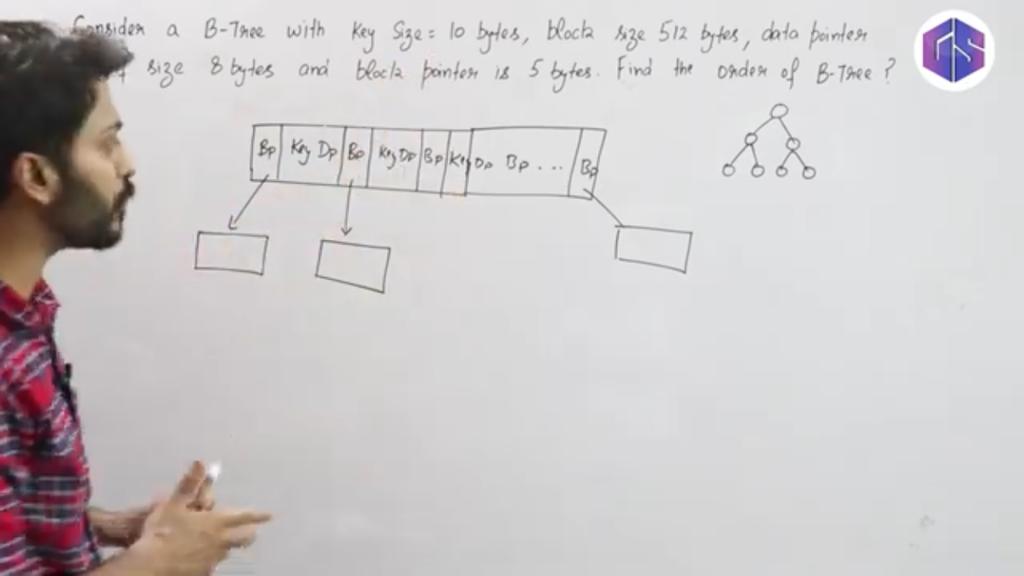 Consider a B-Tree with Key Size = 10 bytes, block size 512 bytes, data pointer
size 8 bytes and block pointer is 5 bytes. Find the order of B-Tree ?
Bp Key Dp Bp Key Dp Bp Key Dp Bp ... Bp